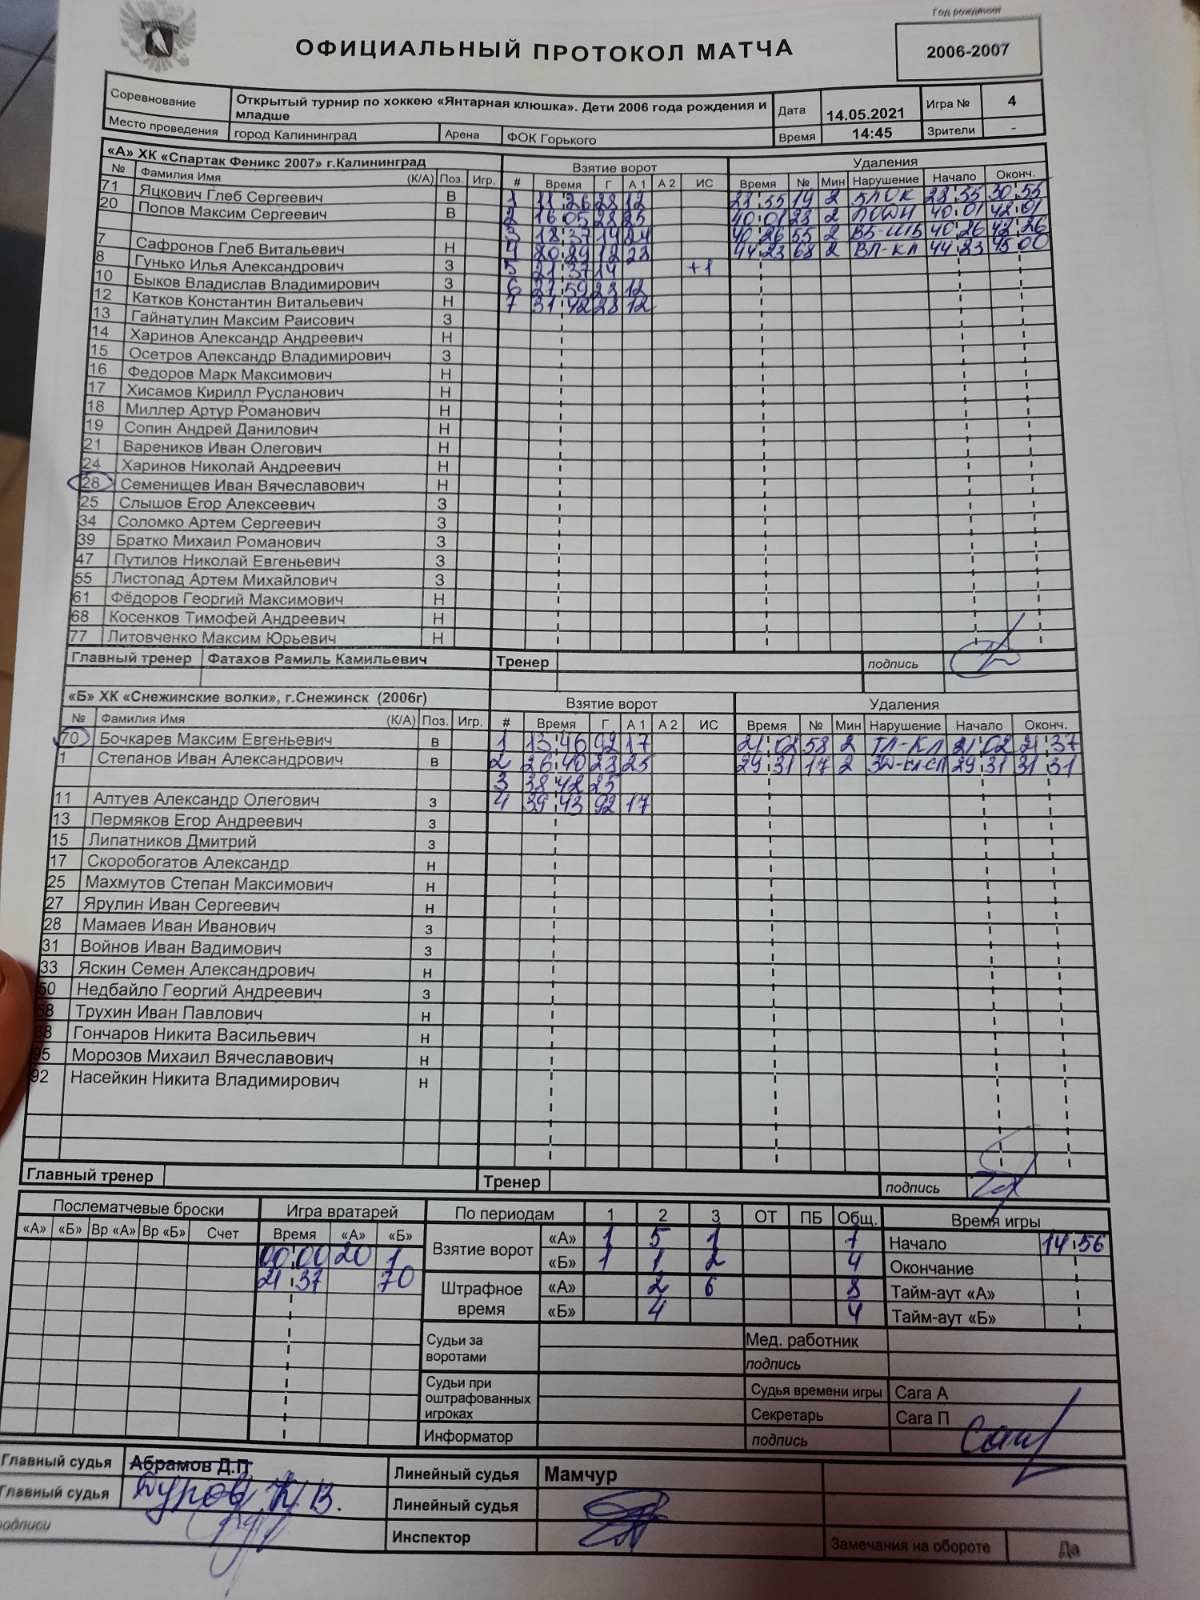 Год рождения
ОФИЦИАЛЬНЫЙ ПРОТОКОЛ МАТЧА
2006-2007
Соревнование Открытый турнир по хоккею «Янтарная клюшка». Дети 2006 года рождения и младше Дата 14.05.2021 Игра № 4
Место проведения город Калининград Арена ФОК Горького Время 14:45 Зрители -
«А» ХК «Спартак Феникс 2007» г.Калининград Взятие ворот Удаления
№ Фамилия Имя (К/А) Поз. Игр. # Время Г А 1 А 2 ИС Время № Мин Нарушение Начало Оконч.
71 Яцкович Глеб Сергеевич В 1 11 26 28 12 19 2 БЛОК
20 Попов Максим Сергеевич В 2 16 05 28 25 40 01 28 2 40 01 42 01
3 18 37 14 40 26 55 2 40 26 42 26
7 Сафронов Глеб Витальевич Н 4 12 28 44 23 68 2 ВП-КЛ 44 23 45 00
8 Гунько Илья Александрович З 5 21 37 14 +1
10 Быков Владислав Владимирович З 6 27 59 28 12
12 Катков Константин Витальевич Н 7 31 42 28 12
13 Гайнатулин Максим Раисович З
14 Харинов Александр Андреевич Н
15 Осетров Александр Владимирович З
16 Федоров Марк Максимович Н
17 Хисамов Кирилл Русланович Н
18 Миллер Артур Романович Н
19 Сопин Андрей Данилович Н
21 Вареников Иван Олегович Н
24 Харинов Николай Андреевич Н
28 Семенищев Иван Вячеславович Н
25 Слышов Егор Алексеевич З
34 Соломко Артем Сергеевич З
39 Братко Михаил Романович З
47 Путилов Николай Евгеньевич З
55 Листопад Артем Михайлович З
61 Фёдоров Георгий Максимович Н
68 Косенков Тимофей Андреевич Н
77 Литовченко Максим Юрьевич Н
Главный тренер Фатахов Рамиль Камильевич Тренер подпись
«Б» ХК «Снежинские волки», г.Снежинск (2006г) Взятие ворот Удаления
№ Фамилия Имя (К/А) Поз. Игр. # Время Г А 1 А 2 ИС Время № Мин Нарушение Начало Оконч.
70 Бочкарев Максим Евгеньевич в 1 13 46 92 17 21 02 58 2 21 02 21 37
1 Степанов Иван Александрович в 2 26 40 28 25 29 31 17 2 29 31 31 31
3 38 48 25
11 Алтуев Александр Олегович з 4 39 43 92 17
13 Пермяков Егор Андреевич з
15 Липатников Дмитрий з
17 Скоробогатов Александр н
25 Махмутов Степан Максимович н
27 Ярулин Иван Сергеевич н
28 Мамаев Иван Иванович з
31 Войнов Иван Вадимович з
33 Яскин Семен Александрович н
50 Недбайло Георгий Андреевич з
Трухин Иван Павлович н
Гончаров Никита Васильевич н
95 Морозов Михаил Вячеславович н
92 Насейкин Никита Владимирович н
Главный тренер Тренер подпись
Послематчевые броски Игра вратарей По периодам 1 2 3 ОТ ПБ Общ. Время игры
«А» «Б» Вр «А» Вр «Б» Счет Время «А» «Б» Взятие ворот «А» 1 5 1 7 Начало 14 56
00 00 20 1 «Б» 1 1 2 4 Окончание
21 37 70 Штрафное время «А» 2 6 8 Тайм-аут «А»
«Б» 4 4 Тайм-аут «Б»
Судьи за воротами Мед. работник
подпись
Судьи при оштрафованных игроках Судья времени игры Сага А
Секретарь Сага П
Информатор подпись
Главный судья Абрамов Д.П Линейный судья Мамчур
Главный судья Линейный судья
подписи Инспектор Замечания на обороте Да